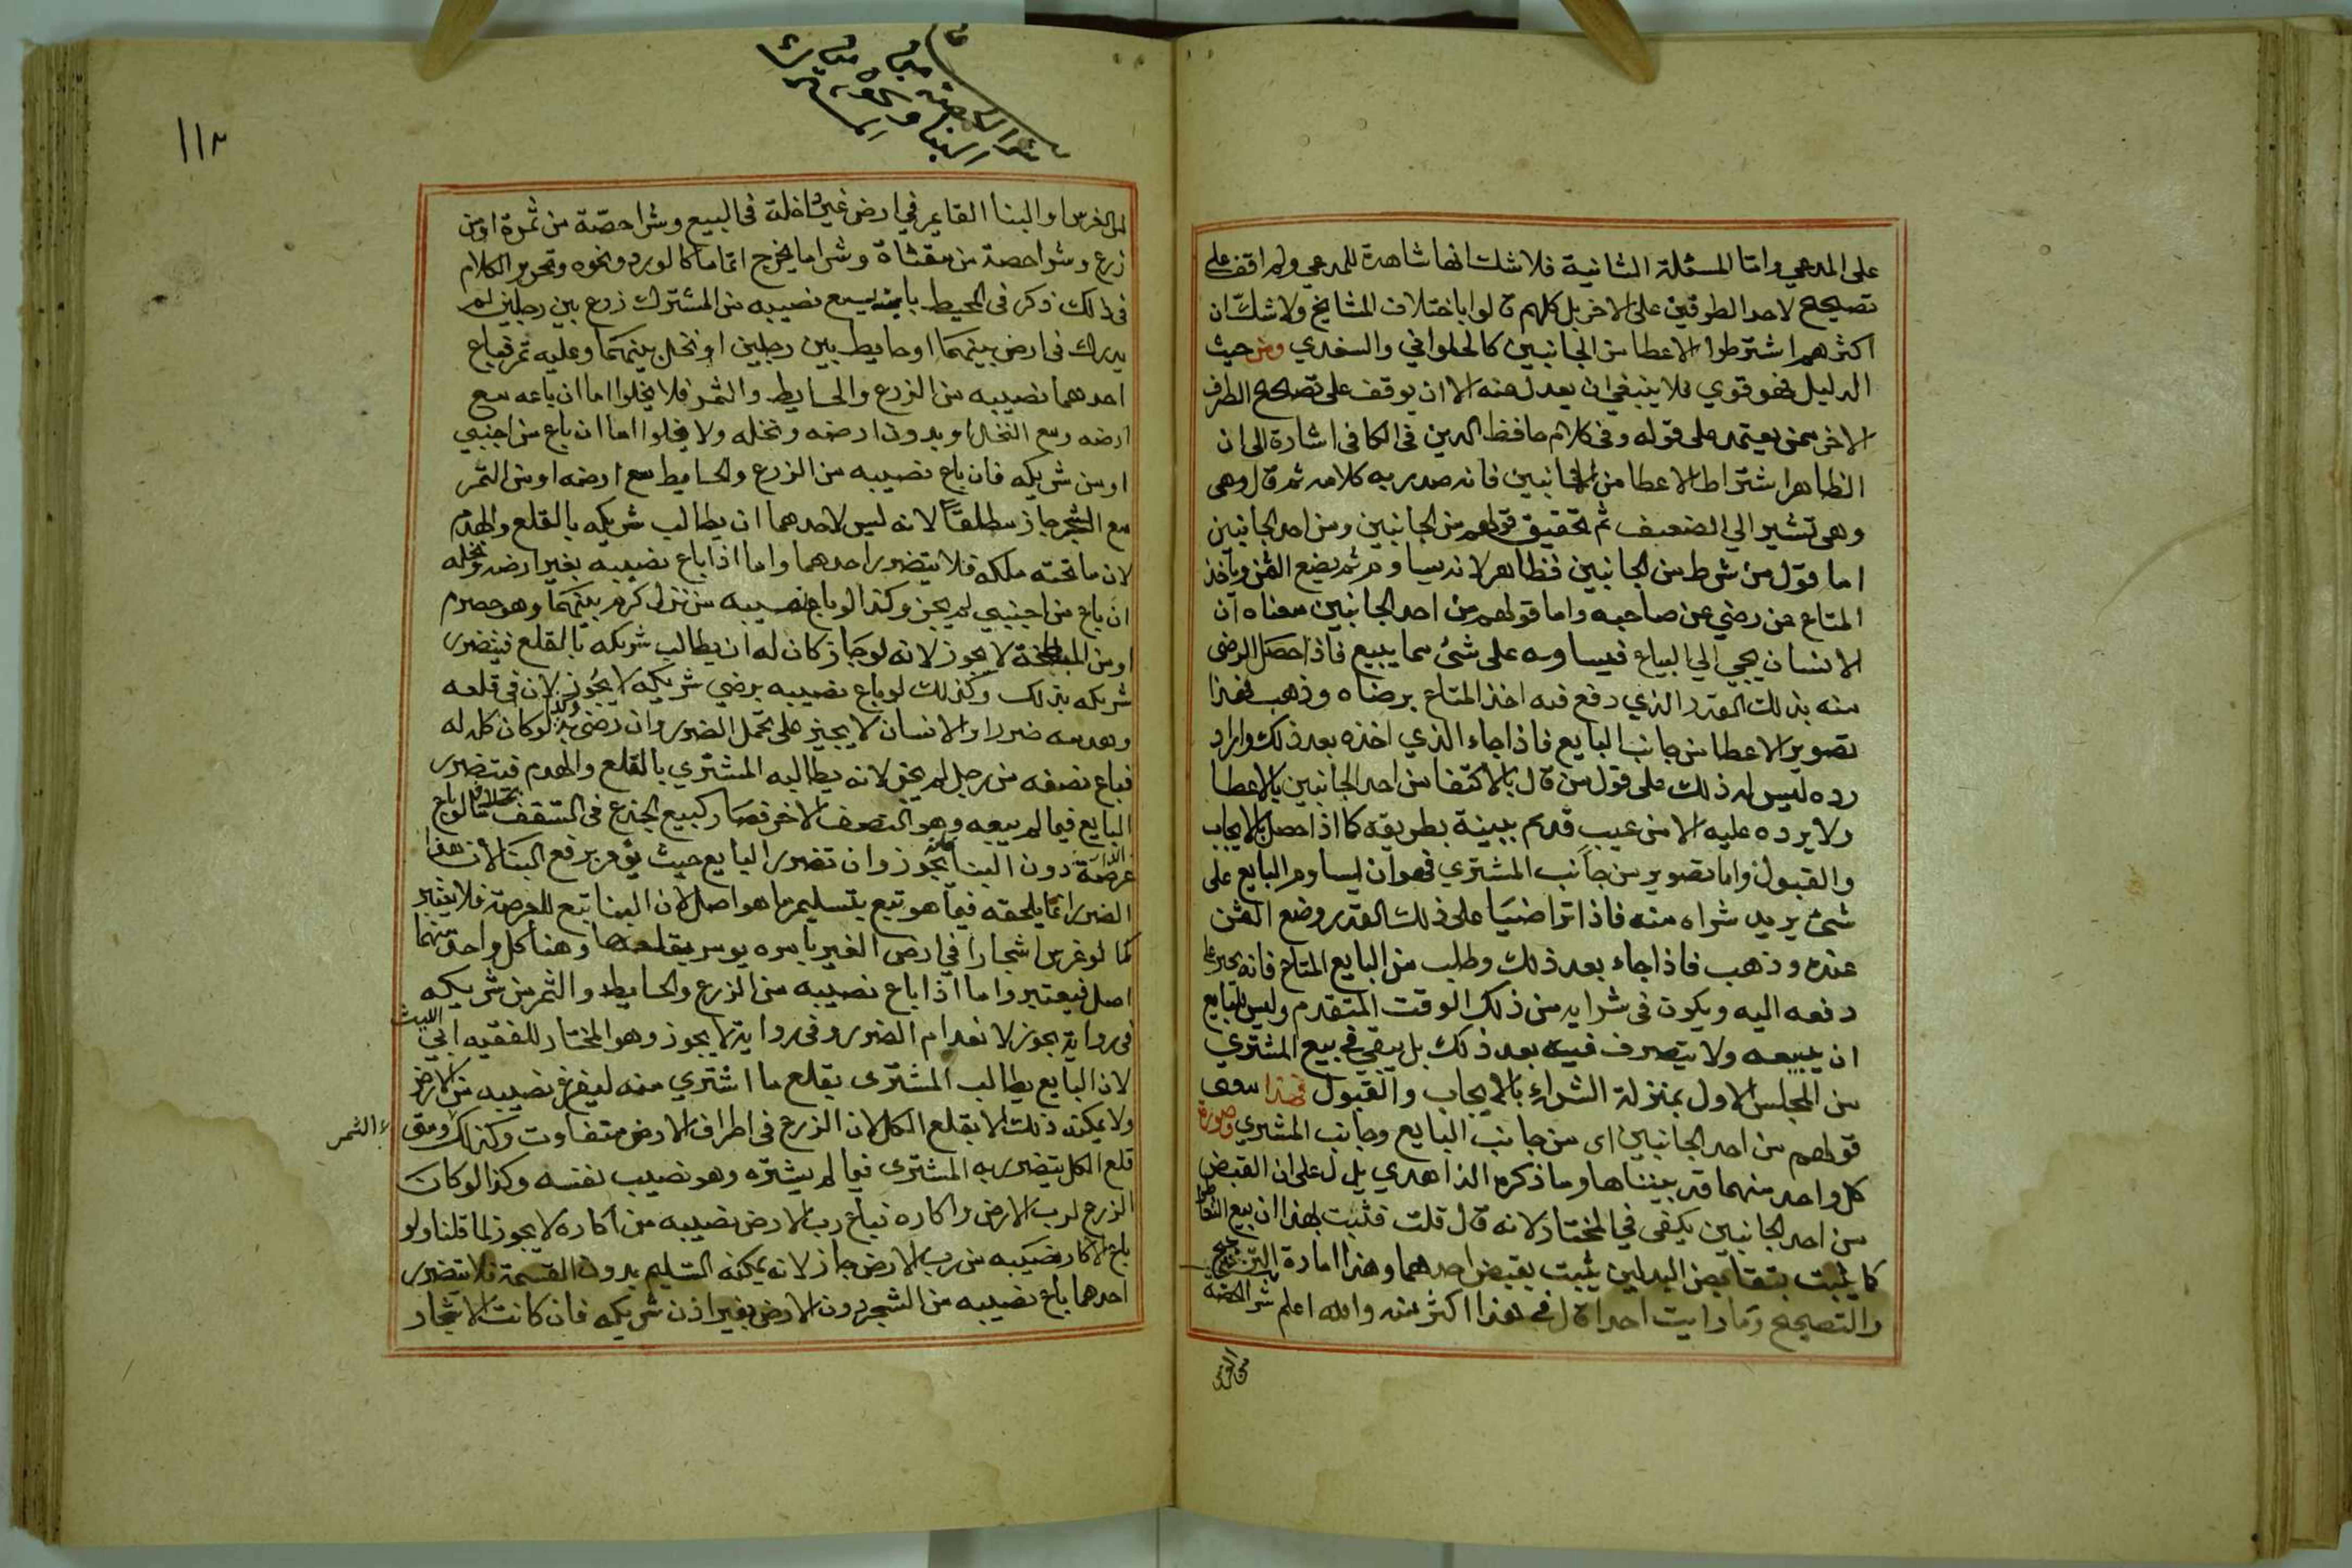 على المدعي واما المسئلة الثانية فلا شك انها شاهدة للمدعي ولم اقف على
تصحيح لاحد الطرفين على الاخر بل كلهم قالوا باختلاف المشايخ ولا شك ان
اكثرهم اشترطوا الاعطا من الجانبين كالحلواني والسغدي ومن حيث
الدليل فهو قوي فلا ينبغي ان يعدل عنه الا ان يوقف على تصحيح الطرف
الاخر ممن يعتمد على قوله وفى كلام حافظ الدين فى الكافى اشارة الى ان
الظاهر اشتراط الاعطا من الجانبين فانه صدر به كلامه ثم قال وهى
وهى تشير الي الضعيف ثم تحقيق قولهم من الجانبين ومن احد الجانبين
اما قول من شرط من الجانبين فظاهر لانه يساوم ثم يضع الثمن وياخذ
المتاع عن رضي عن صاحبه واما قولهم من احد الجانبين معناه ان
الانسان يجي الي البياع فيساومه على شئ مما يبيع فاذا حصل الرضى
منه بذلك القدر الذي دفع فيه اخذ المتاع برضاه وذهب فهذا
تصوير الاعطا من جانب البايع فاذا جاء الذي اخذه بعد ذلك واراد
رده ليس له ذلك على قول من قال بالاكتفا من احد الجانبين بالاعطا
ولا يرده عليه الا من عيب قديم ببينة بطريقه كما اذا حصل بالايجاب
والقبول واما تصويره من جانب المشتري فهو ان يساوم البايع على
شئ يريد شراه منه فاذا تراضيا على ذلك القدر وضع الثمن
عنده وذهب فاذا جاء بعد ذلك وطلب من البايع المتاع فانه يجبر على
دفعه اليه ويكون فى شرايه من ذلك الوقت المتقدم وليس للبايع
ان يبيعه ولا يتصرف فيه بعد ذلك بل يبقي في بيع المشتري
من المجلس الاول بمنزلة الشراء بالايجاب والقبول فهذا معنى
قولهم من احد الجانبين اى من جانب البايع وجانب المشتري وصورة
كل واحد منهما قد بيناها وما ذكره الزاهدي يدل على ان القبض
من احد الجانبين يكفى في المختار لانه قال قلت فثبت بهذا ان بيع التعاطى
كما يثبت بتقابض البدلين يثبت بقبض احدهما وهذا امارة الترجيح
والتصحيح وما رايت احدا قال فى هذا اكثر منه والله اعلم شرا الحصة
من الغرس
١١٢
شرا الحصة من
البنا والغرس من
المشترك
من الغرس او البنا القايم في ارض غير داخلة فى البيع وشرا حصة من ثمرة او من
زرع وشرا حصة من مقثاة وشرا ما يخرج اتماما كالورد ونحوه وتحرير الكلام
فى ذلك ذكر فى المحيط باب بيع نصيبه من المشترك زرع بين رجلين لم
يدرك فى ارض بينهما او حايط بين رجلين او نخل بينهما وعليه ثمر فباع
احدهما نصيبه من الزرع والحايط والثمر فلا يخلوا اما ان باعه مع
ارضه ومع النخل او بدون ارضه ونخله ولا يخلوا اما ان باع من اجنبي
او من شريكه فان باع نصيبه من الزرع والحايط مع ارضه او من الثمر
مع الشجر جاز مطلقا لانه ليس لاحدهما ان يطالب شريكه بالقلع والهدم
لان ما تحته ملكه فلا يتضرر احدهما واما اذا باع نصيبه بغير ارضه ونخله
ان باع من اجنبي لم يجز وكذا لو باع نصيبه من نزل كرم بينهما وهو حصرم
او من المبطخة لا يجوز لانه لو جاز كان له ان يطالب شريكه بالقلع فيتضرر
شريكه بذلك وكذلك لو باع نصيبه برضي شريكه لا يجوز لان فى قلعه
وهدمه ضررا والانسان لا يجبر على تحمل الضرر وان رضى به وكذا لو كان كله له
فباع نصفه من رجل لم يجز لانه يطالبه المشتري بالقلع والهدم فيتضرر
البايع فيما لم يبيعه وهو النصف الاخر فصار كبيع الجذع فى السقف بخلاف ما لو باع
عرصة دون البنا يجوز وان تضرر البايع حيث يؤمر برفع البنا لان هذا
الضرر انما يلحقه فيما هو تبع بتسليم ما هو اصل لان البنا تبع للعرصة فلا يعتبر
كما لو غرس اشجارا في ارض الغير بامره يومر بقلعها وهنا كل واحد منهما
اصل فيعتبر واما اذا باع نصيبه من الزرع والحايط والثمر من شريكه
فى رواية يجوز لانعدام الضرر وفى رواية لا يجوز وهو المختار للفقيه ابي الليث
لان البايع يطالب المشترى بقلع ما اشتري منه ليفرغ نصيبه من الارض
ولا يمكنه ذلك الا بقلع الكل لان الزرع فى اطراف الارض متفاوت وكذلك ومتى
الثمر
قلع الكل يتضرر به المشترى فيما لم يشتره وهو نصيب نفسه وكذا لو كان
الزرع لرب الارض واكاره فباع رب الارض نصيبه من اكاره لا يجوز لما قلنا ولو
باع الاكار نصيبه من رب الارض جاز لانه يمكنه التسليم بدون القسمة فلا يتضرر
احدهما باع نصيبه من الشجر دون الارض بغير اذن شريكه فان كانت الاشجار